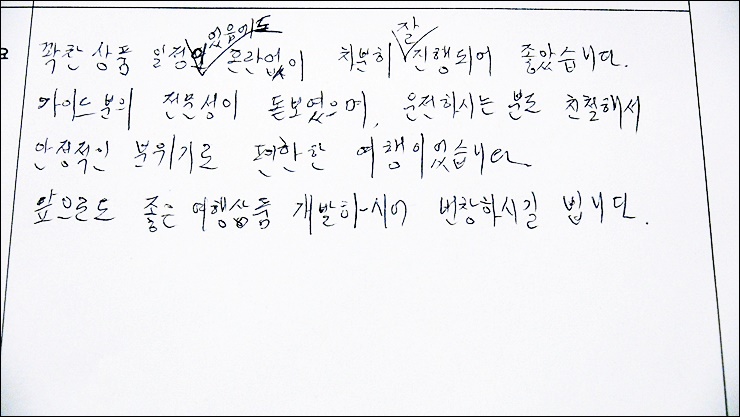 꽉찬 상품 일정이었음에도 혼란없이 차분히 잘 진행되어 좋았습니다.
가이드분의 전문성이 돋보였으며, 운전하시는 분도 친절해서
안정적인 분위기로 편안한 여행이었습니다.
앞으로도 좋은 여행상품 개발하시어 번창하시길 빕니다.